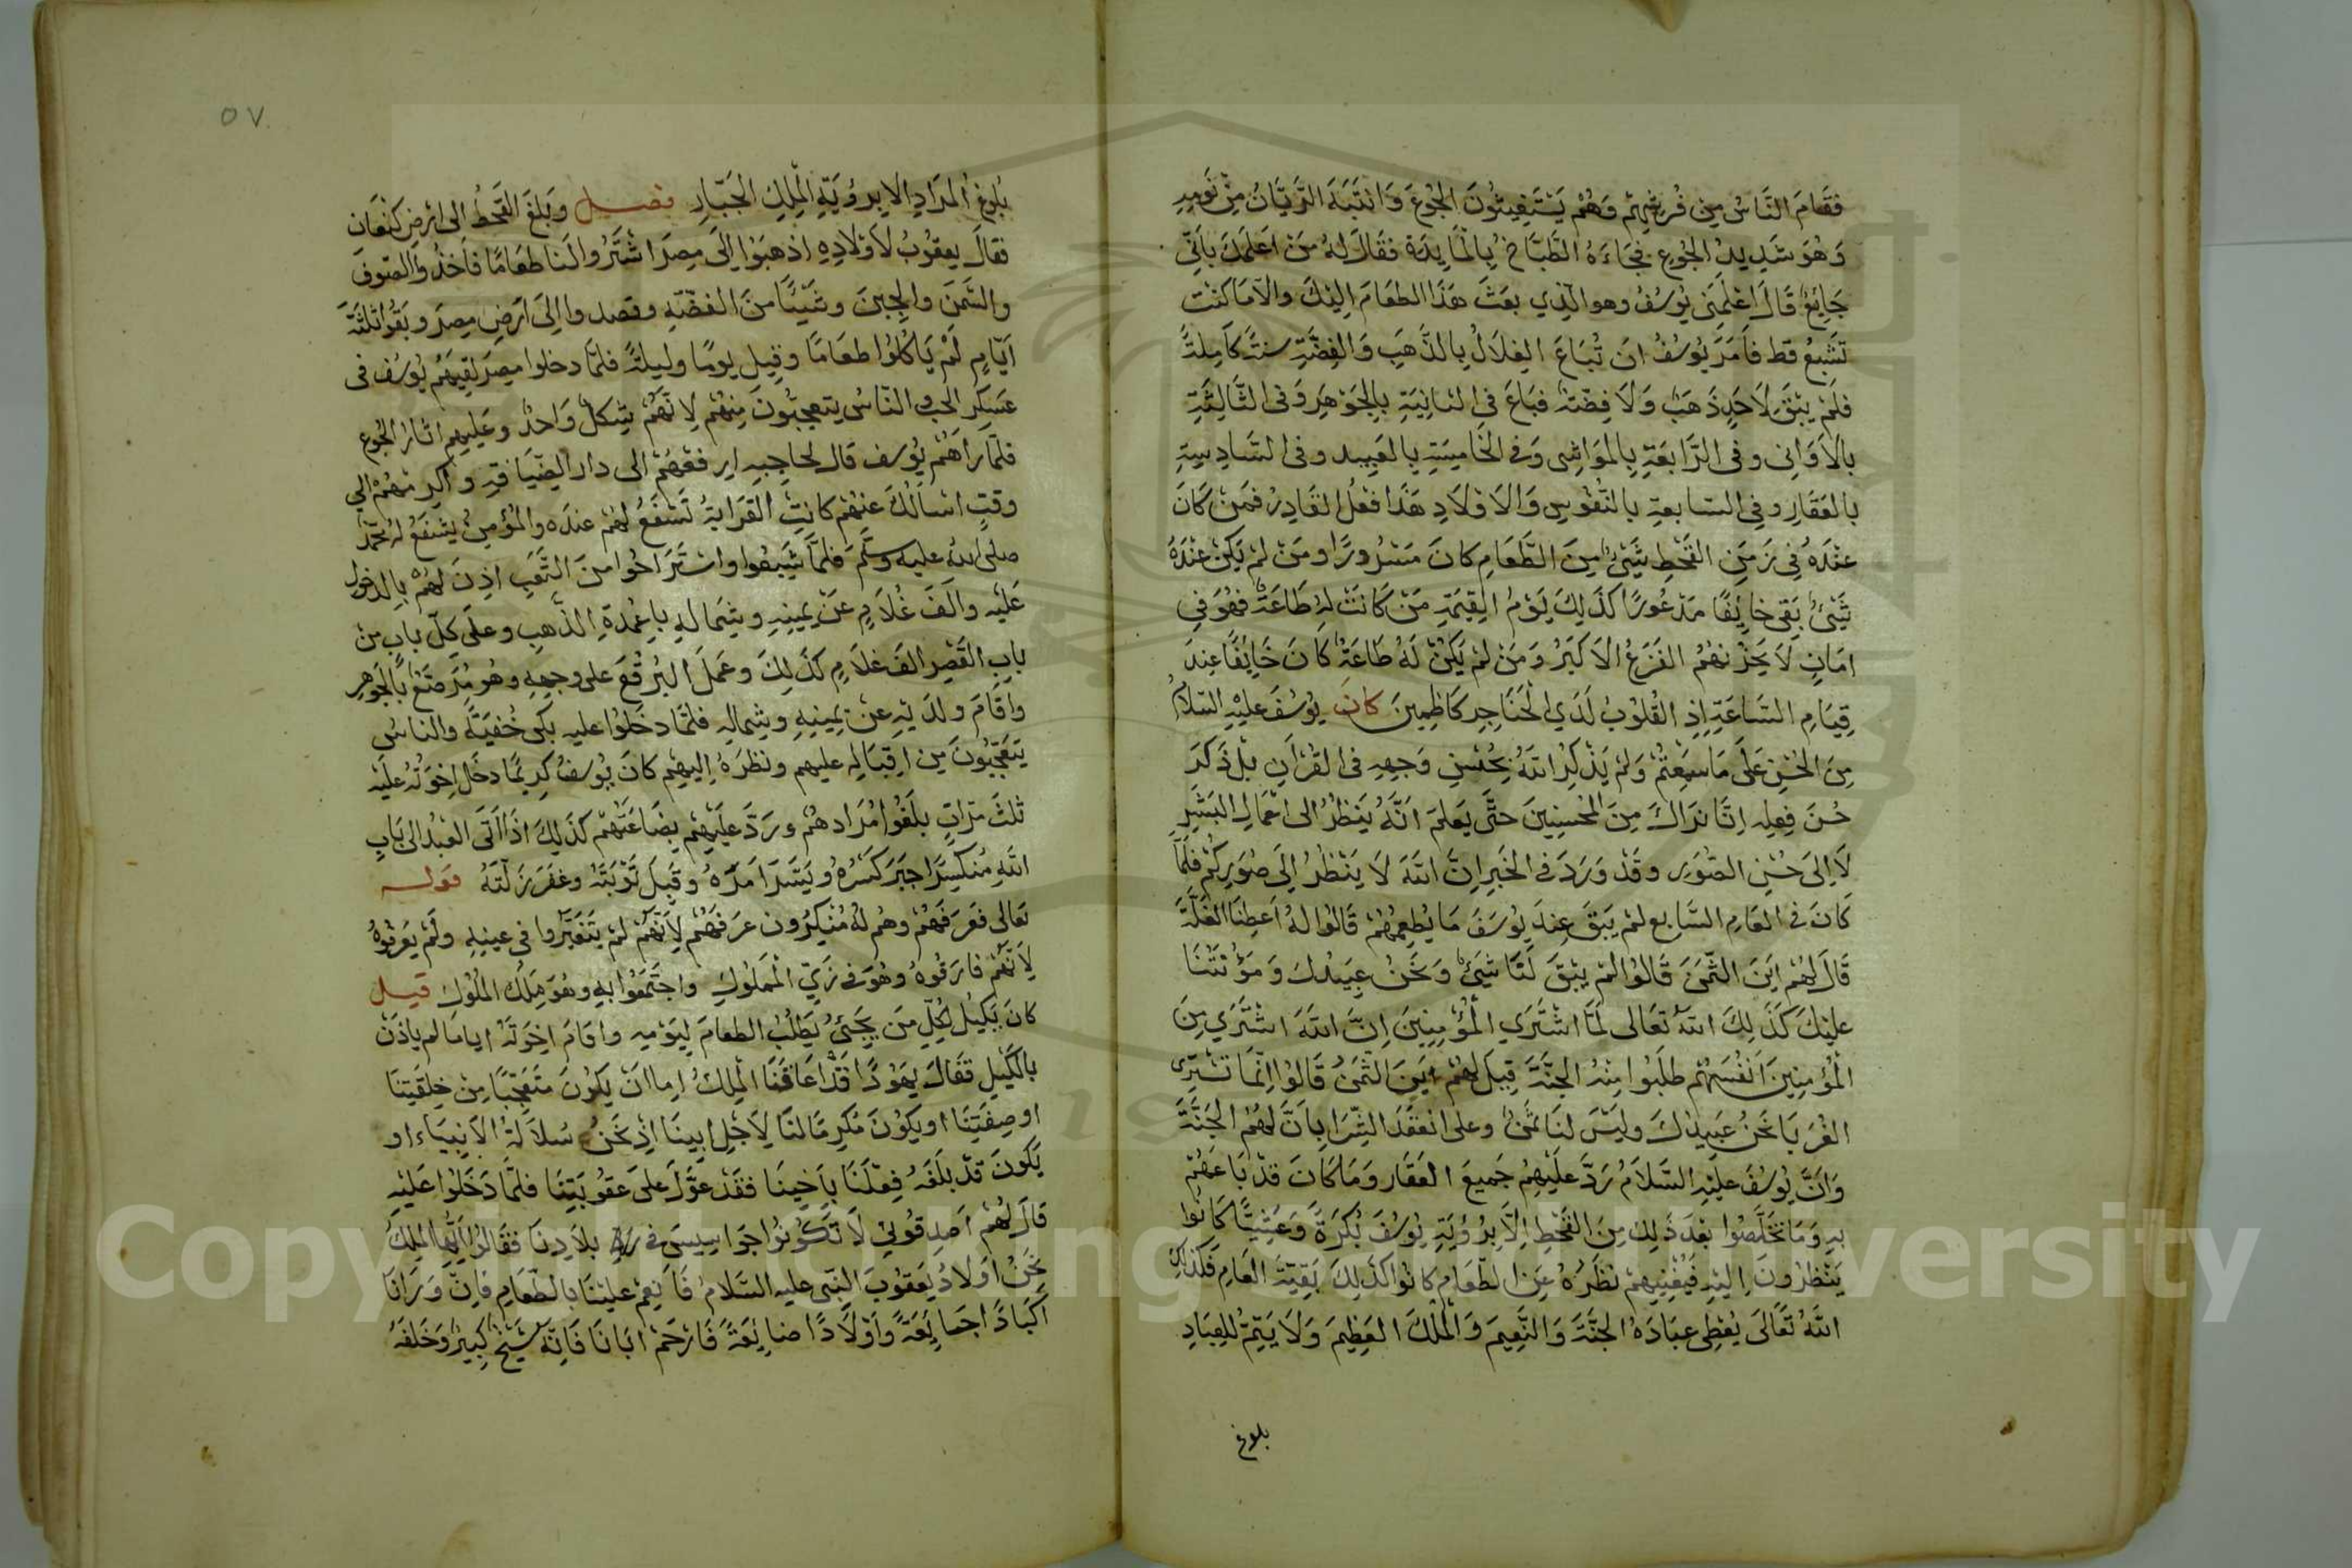 فَقَامَ النَّاسُ مِن فُرُشِهِمْ وَهُمْ يَسْتَغِيثُونَ الجُوعَ وَانْتَبَهَ الرَّيَّانُ مِنْ نَومِهِ
وَهُوَ شَدِيدُ الجُوعِ فَجَاءَهُ الطَّبَّاخُ بِالْمَايِدَةِ فَقَالَ لَهُ مَنْ اَعْلَمَكَ بِاَنِّى
جَايِعٌ قَالَ اَعْلَمَنِى يُوسُفُ وهو الَّذِي بَعَثَ هَذَا الطعَامَ اِلَيْكَ وَالَّا مَا كُنْتَ
تَشْبَعُ قط فَاَمَرَ يُوسُفُ اَن تُبَاعَ الغِلَالُ بِالذَّهَبِ وَالْفِضَّةِ سنةً كَامِلةً
فلَمْ يَبْقَ لاَحَدٍ ذَهَبٌ وَلَا فِضّةٌ فَبَاعَ فِى الثانِيَةِ بِالجَوْهَرِ وَفى الثَّالِثَةِ
بالاَوَانِى وفى الرَّابعَةِ بِالمَوَاشِى وَفى الخَامِسَةِ بالعَبِيد وفى السَّادِسةِ
بالعَقَارِ وفِى السّابعةِ بالنُّفُوسِ وَالاَوْلَادِ هَذَا فِعْلُ القَادِرْ فَمَنْ كَانَ
عِنْدَهُ فِى زَمَنِ القَحْطِ شَىْءٌ مِنَ الطَّعَامِ كَانَ مَسْرُورًا ومَنْ لَمْ يَكُنْ عِنْدَهُ
شَىْءٌ بَقِى خَايِفًا مَذْعُورًا كذَلِكَ يَوْمُ القِيمَةِ مَنْ كَانَتْ لَهُ طَاعَةٌ فهُوَ فِى
اَمَانٍ لَا يَحْزُنهُمُ الفَزَعُ الاَكْبَرُ وَمَنْ لَمْ يَكُنْ لَهُ طَاعَةٌ كَانَ خَايِفًا عِندَ
قِيَامِ السَّاعَةِ اِذِ القُلُوبُ لَدَي الْحَنَاجِرِ كَاظِمِينَ كانَ يُوسُفَ عَلَيْهِ السَّلَامُ
مِنَ الحُسْنِ عَلَى مَا سَمِعْتُمْ وَلَمْ يَذْكُرِ اللهُ بِحُسْنِ وَجهِهِ فِى القُرْاٰنِ بَلْ ذَكَرَ
حُسْنَ فِعلِه اِنَّا نَرَاكَ مِنَ المُحْسِنِينَ حتَّى يَعلَمَ اَنَّهُ يَنظُرُ الى اَعْمَالِ البَشَرِ
لَا اِلىَ حُسْنِ الصّوَرِ وقَدْ وَرَدَ فى الخَبَرِ اِنَّ اللهَ لَا يَنْظُرُ اِلَى صُوَرِكُمْ فَلَمَّا
كَانَ فى العَامِ السَّابع لَمْ يَبْقَ عِندَ يُوسُفَ مَا يُطْعِمُهُمْ قَالُوا لَهُ اَعطِنَا الغَلَّةَ
قَالَ لَهُمْ اَيْنَ الثَّمَنَ قَالُوا لَمْ يَبْقَ لَنَا شَىْءٌ وَنَحْنُ عَبِيدُكَ وَمَؤُنَتُنَا
عَلَيْكَ كَذَلِكَ اللهُ تعَالى لَمَّا اشْتَرَي الْمُؤْمِنِينَ اِنَّ اللهَ اشْتَرَي مِنَ
الْمُؤمِنِينَ اَنْفُسَهُمْ طَلَبُوا مِنْهُ الجَنَّةَ قِيلَ لَهُمْ اَيْنَ الثَّمَنُ قَالُوا اِنَّمَا تَشْتَرِى
الغُرَبَا نَحْنُ عَبِيدُكَ وليْسَ لنَا ثَمَنٌ وعلى انعَقَدَ الشِّرَا بِاَنَّ لَهُمُ الجَنَّةَ
وَاَنَّ يُوسُفَ عَلَيْهِ السَّلَامُ رَدَّ عَلَيْهِمْ جَمِيعَ العَقَارِ وَمَا كَانَ قَدْ بَاعَهُمْ
بهِ وَمَا تَخَلَّصُوا بَعْدَ ذَلِكَ مِنَ القَحْطِ اِلَّا بِرُؤْيَةِ يُوسُفَ بُكْرَةً وَعَشِيًّا كَانُوا
يَنْظُرُونَ اِلَيْهِ فَيُغْنِيهِمْ نَظَرُهُ عَنِ الطَّعَامِ كَانُوا كَذَلِكَ بَقِيَّةَ العَامِ فَكذلِكَ
اللهُ تَعَالَى يُعْطِى عِبَادَهُ الجَنَّةَ وَالنَّعِيمَ وَالْمُلْكَ العَظِيمَ وَلَا يَتِمُّ لِلعِبَادِ
بلوغ
٥٧
بُلُوغُ الْمُرَادِ اِلا بِرُؤيَةِ الْمَلِكِ الجَبَّارِ فصـل وَبَلغَ القَحْطُ الى اَرْضِ كَنْعَانِ
فَقَالَ يعقُوبُ لأَوْلَادِهِ اذْهَبُوْا اِلَى مِصرَ اشْتَرُوا لَنا طعَامًا فَاَخذُوا الصّوفَ
والسَّمنَ والجِبنَ وشَيْئًا منَ الفضّةِ وقصدوا اِلىَ اَرْضِ مِصرَ وبَقُوا ثلثَةَ
اَيّامٍ لَمْ يَاْكُلوُا طعَامًا وقِيل يومًا وليلةً فلَمَّا دخلوا مِصرَ لقِيَهُم يُوسُف فى
عَسكرِ الحب والنّاسُ يتعجبُونَ مِنهُمْ لِاَنَّهُمْ بِشكلٍ وَاحدٌ وعَليهِم اثارُ الجُوع
فلَمّا راٰهُمْ يُوسف قال لحاجبِهِ ارفعْهُمْ الى دار الضِّيَافةِ واكرِمْهُمْ الي
وقتِ اسألكَ عنهُمْ كانتِ القرَابةُ تَشْفَعُ لَهُمْ عندَه والمُؤمِنُ يشفعُ لهُ محمّدٌ
صلى الله عليه وسَلَّمَ فلمَّا شَبِعُوا واسْتَرَاحُوا منَ التَّعَبِ اَذِنَ لَهُمْ بالدخولِ
عَلَيْه والَفَ غُلَامٍ عَنْ يَمينِهِ وشِمَالهِ باعْمدَةِ الذّهبِ وعلَى كلّ بابٍ منْ
بابِ القَصْرِ الفَ غلَامٍ كذَلِكَ وعَملَ البُرقُعَ على وجهِهِ وهُو مُرَصّعٌ بالجَوهَرِ
واَقَامَ ولدَيْهِ عنْ يَمِينِهِ وشِمالِهِ فلَمّا دخَلُوا عليه بَكى خُفيَةً والناسُ
يَتَعَجَّبُونَ مِن اِقبَالِهِ عليهم ونظَرَهُ اِليهِم كانَ يُوسُفُ كَرِيمًا دخَلَ اِخوَتهُ علَيْه
ثلثَ مرّاتٍ بلَغُوا مُرَادهُمْ ورَدَّ علَيْهِمْ بِضَاعَتَهُمْ كَذَلِكَ اذَا اَتَى العَبْدُ الى بَابِ
اللهِ مُنكسِرًا جَبَرَ كَسْرَهُ ويَسَّرَ اَمرَهُ وقَبِلَ تَوْبَتَهُ وغَفَرَ زَلّتَهُ قولــه
تعالى فعَرَفَهُمْ وهُمْ لَهُ مُنْكِرُون عرَفَهُم لِاَنَّهُمْ لَمْ يَتَغَيَّرُوا فى عينِهِ ولَمْ يَعرِفُوهُ
لِاَنّهُمْ فارَقُوهُ وهُوَ فى زِيّ الْمَملُوكِ واجتَمَعُوا بهِ وهُوَ مَلِكُ المُلُوْكِ قيـل
كانَ يَكِيلُ لكُلِّ مَن يَجِئُ يَطْلُبُ الطعَامَ لِيَوْمِهِ واقَامَ اِخوَتُهُ اياما لم ياذَنْ
بالكَيْلِ فقَالَ يَهُودَا قَدْ اَعَاقَنَا الْمَلِكُ اِما اَنْ يكُونَ متعَجّبًا مِنْ خِلقَتِنَا
اوصِفَتِنَا او يكُونَ مُكْرِمًا لنَا لِاَجْلِ اَبِينَا اِذْ نَحْنُ سُلالَةُ الاَنْبِيَاءِ او
يَكُونَ قَدْ بلَغَهُ فِعْلَنَا بِاَخِينَا فقَدْ عوَّلَ علىَ عقُوبَتِنَا فلَمَّا دَخَلُوا عَلَيْهِ
قالَ لَهُمْ اَصدِقُونِي لَا تَكُونُوا جَوَاسِيسَ فى بلَادِنَا فقَالُوا اَيُّهَا المَلِكُ
نَحْنُ اَولَادُ يَعقُوبَ النّبى عليه السّلَامُ فَاَنعِمْ علَيْنَا بالطَّعَامِ فَاِنَّ وَرَانَا
اَكْبَادًا جَايِعَةً واَوْلَادًا ضَايِعَةً فَارْحَمْ اَبَانَا فَاِنّهُ شَيْخٌ كَبِيرٌ وَخَلفَهُ
Copyright © King Saud University